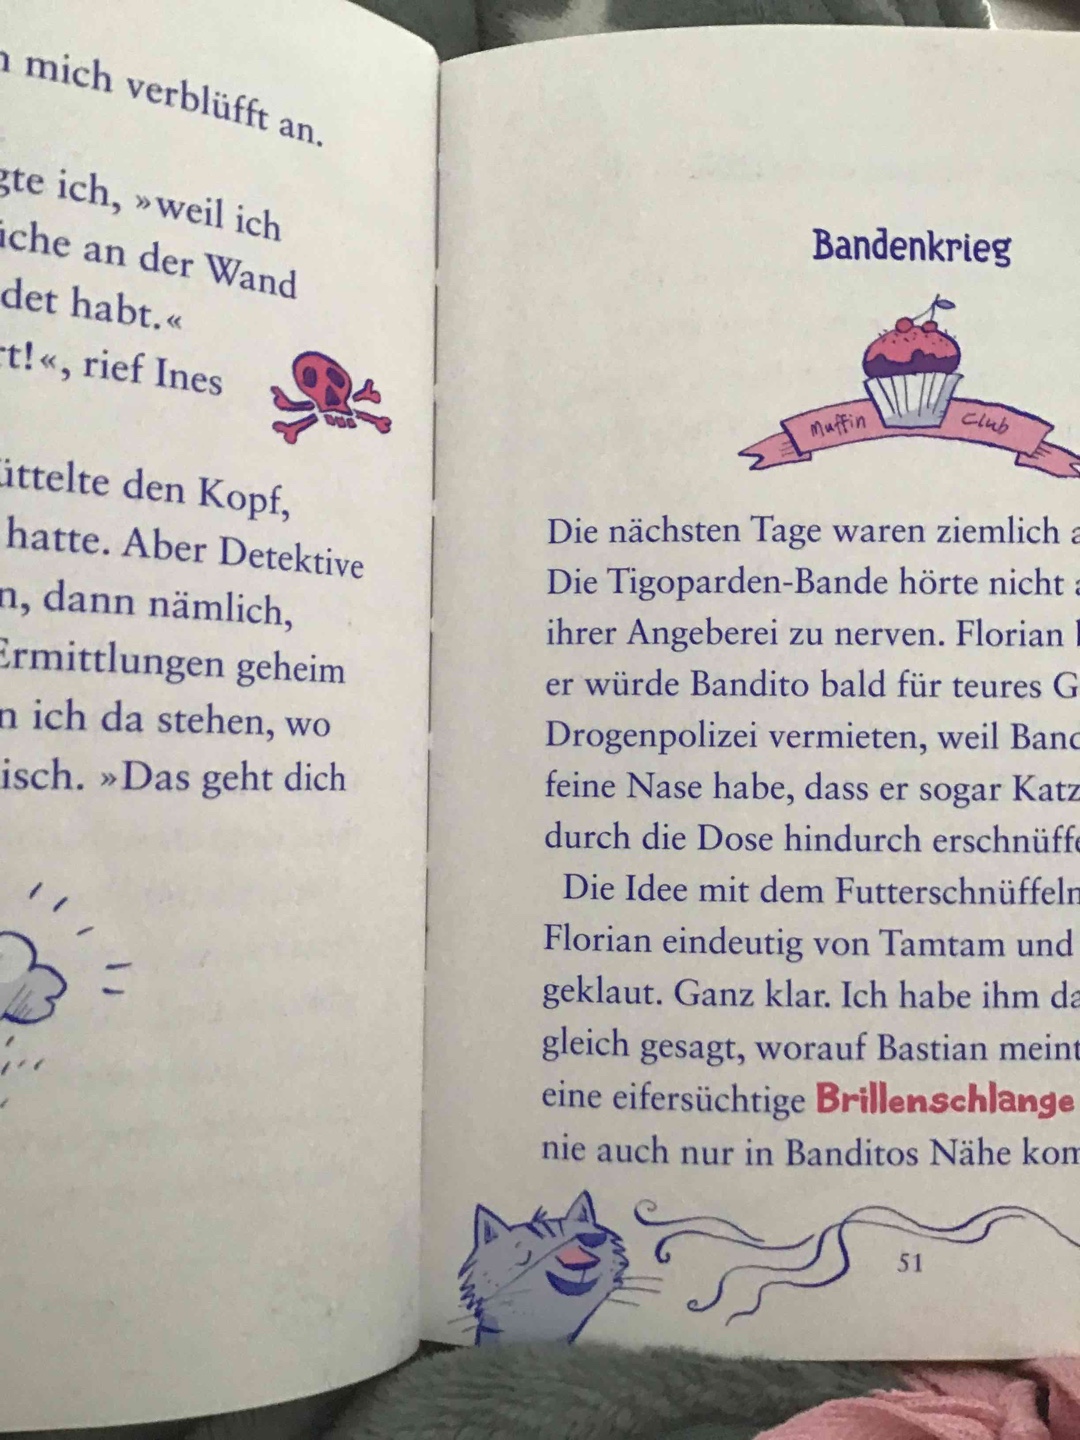 mich verblüfft an.
ich, »weil ich
an der Wand
habt.«
rief Ines
den Kopf,
hatte. Aber Detektive
dann nämlich,
Ermittlungen geheim
ich da stehen, wo
»Das geht dich
Bandenkrieg
Muffin Club
Die nächsten Tage waren ziemlich
Die Tigoparden-Bande hörte nicht
ihrer Angeberei zu nerven. Florian
er würde Bandito bald für teures
Drogenpolizei vermieten, weil
feine Nase habe, dass er sogar
durch die Dose hindurch
Die Idee mit dem
Florian eindeutig von Tamtam und
geklaut. Ganz klar. Ich habe ihm
gleich gesagt, worauf Bastian
eine eifersüchtige Brillenschlange
nie auch nur in Banditos Nähe
51